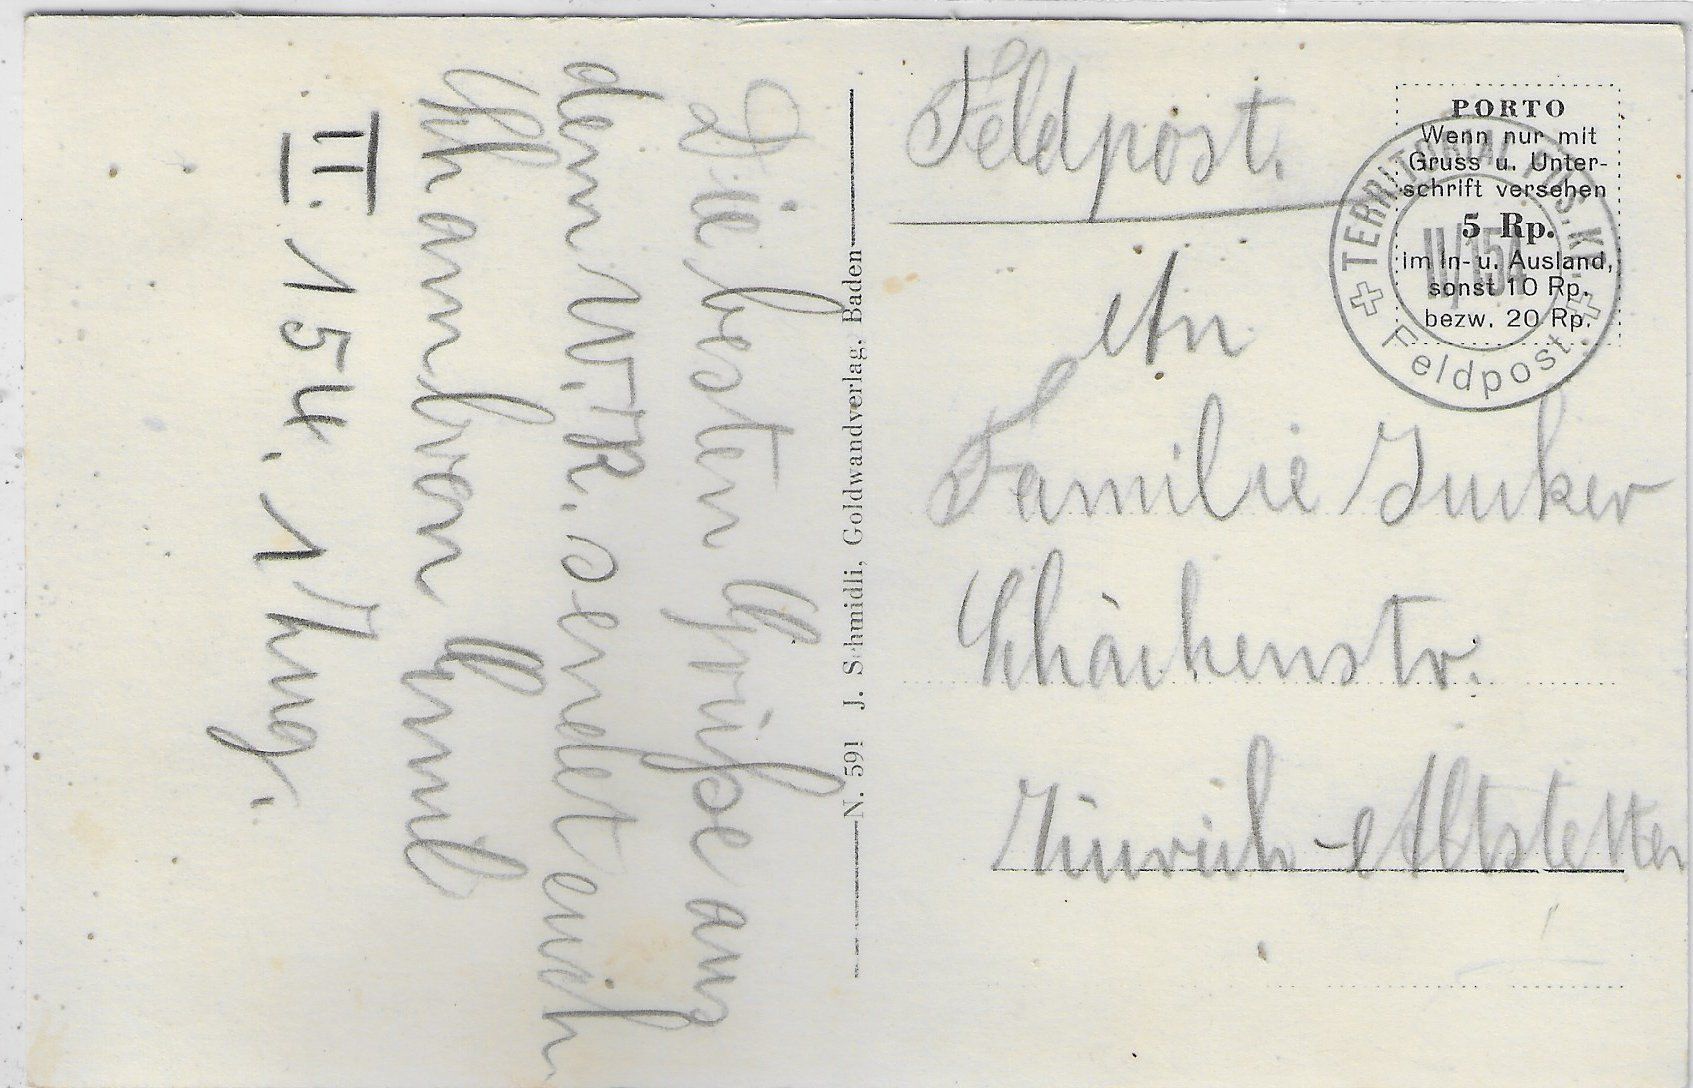 Feldpost.
PORTO
Wenn nur mit
Gruss u. Unter-
schrift versehen
5 Rp.
im In- u. Ausland,
sonst 10 Rp.
bezw. 20 Rp.
TERRITORIAL FÜS. KP.
II/154
Feldpost
An
Familie Junker
Schächenstr.
Zürich-Altstetten
N. 591 J. Schmidli, Goldwandverlag, Baden
Die besten Grüße aus
dem W.K. sendet euch
Emil
II. 154. 1 Zug.